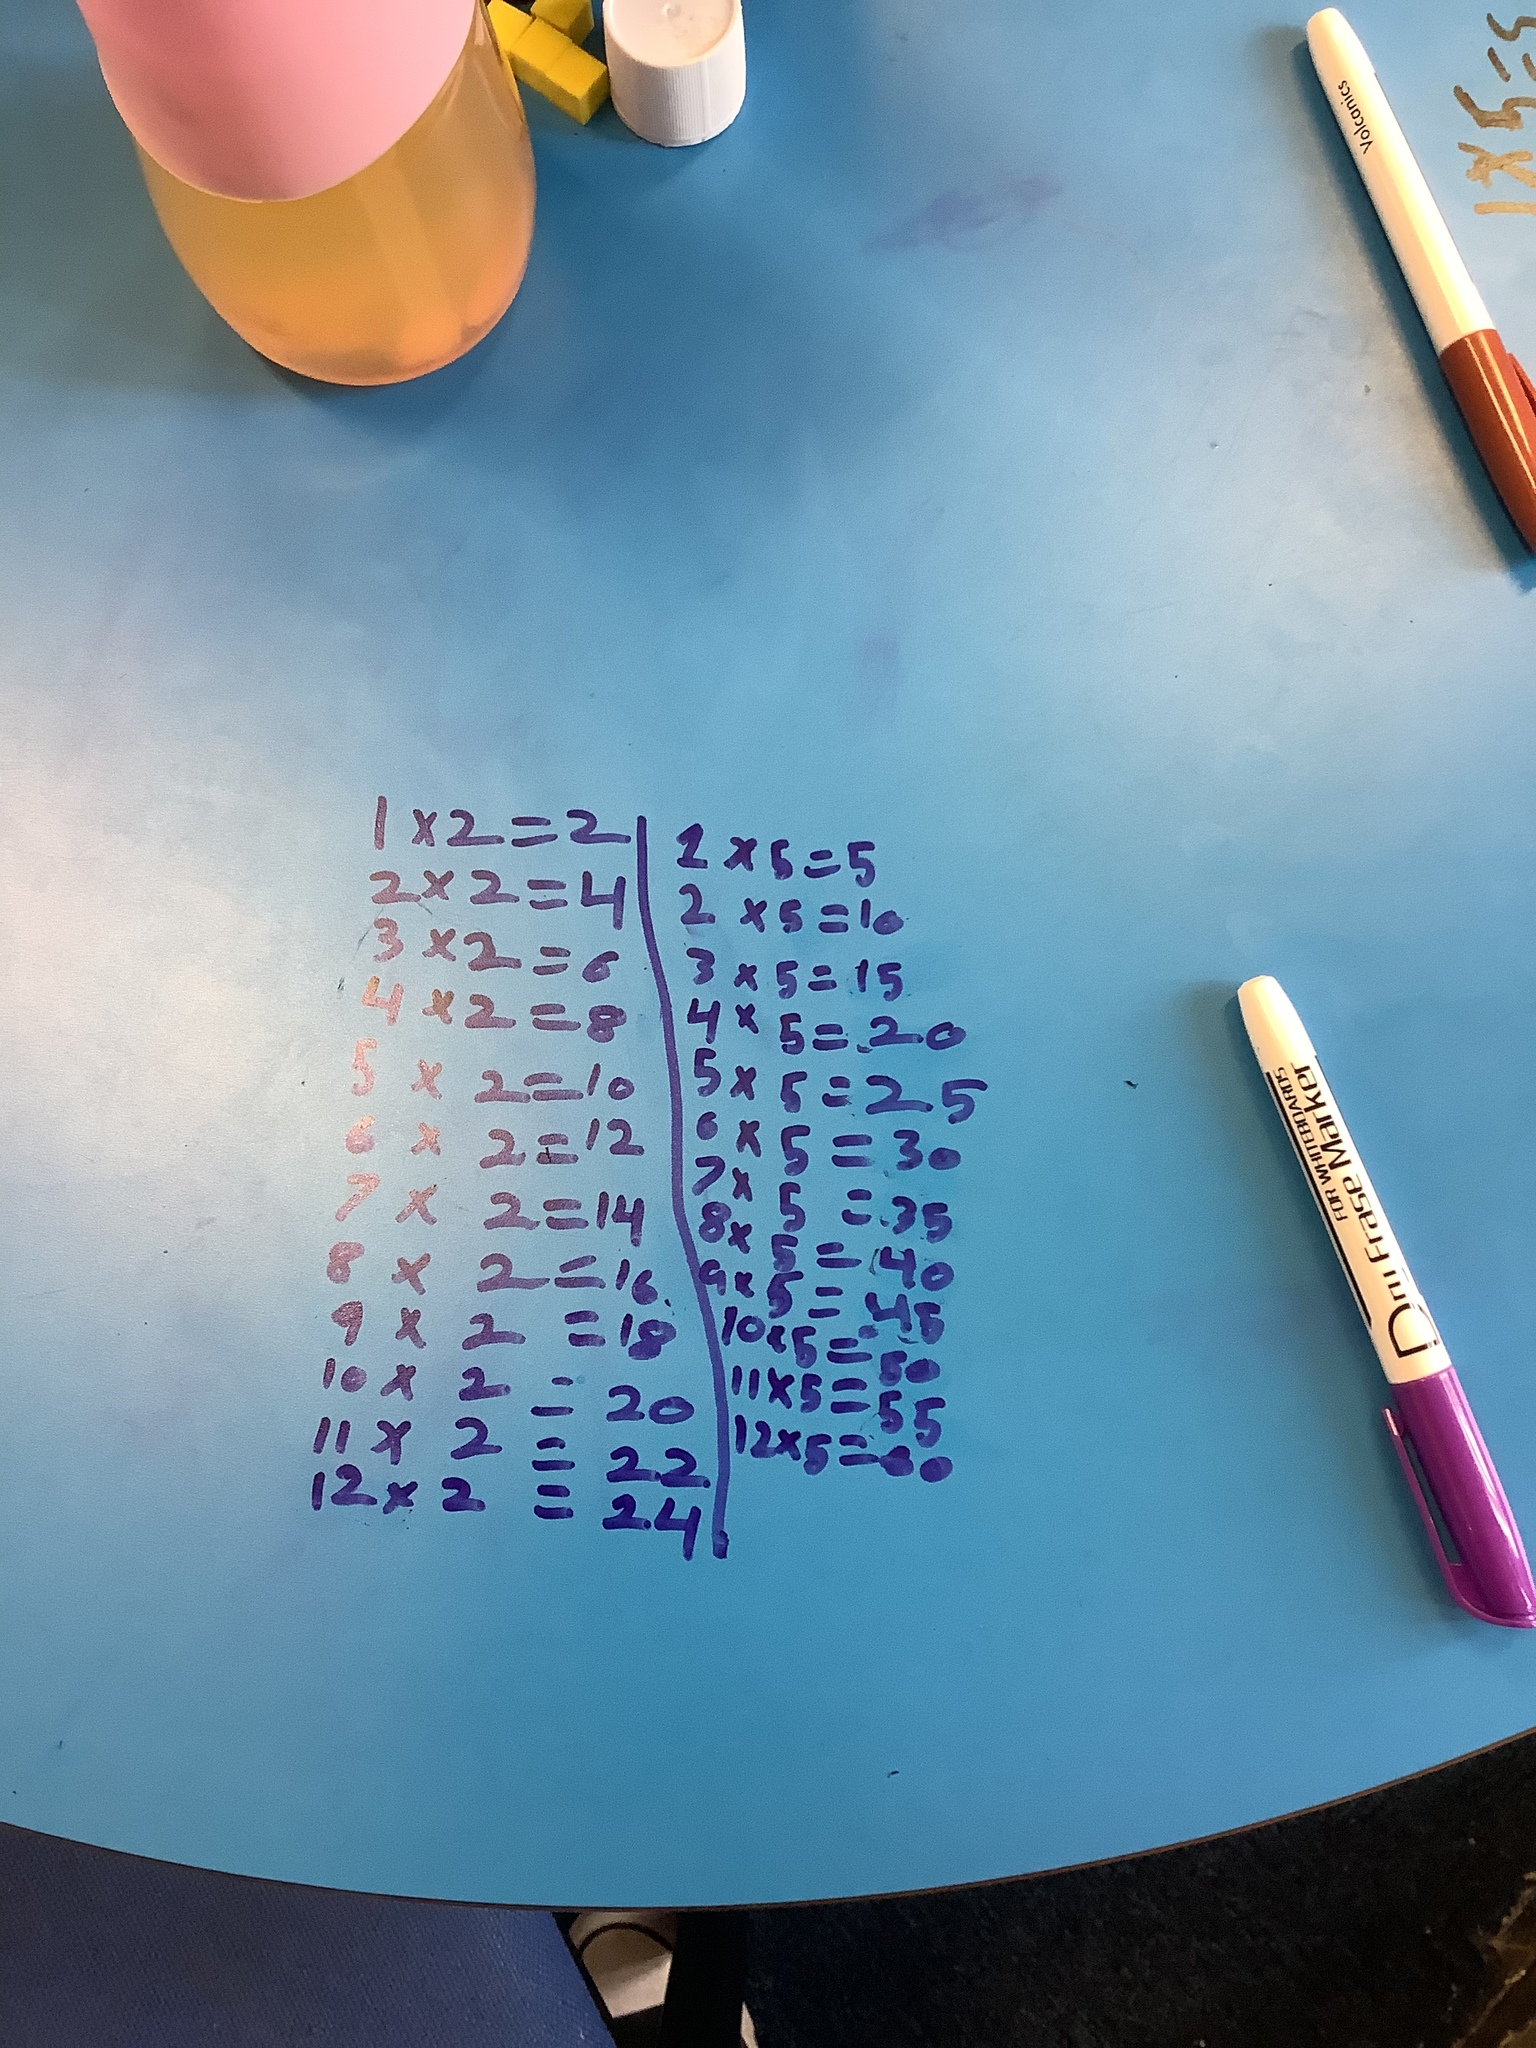 1 x 2 = 2
2 x 2 = 4
3 x 2 = 6
4 x 2 = 8
5 x 2 = 10
6 x 2 = 12
7 x 2 = 14
8 x 2 = 16
9 x 2 = 18
10 x 2 = 20
11 x 2 = 22
12 x 2 = 24
1 x 5 = 5
2 x 5 = 10
3 x 5 = 15
4 x 5 = 20
5 x 5 = 25
6 x 5 = 30
7 x 5 = 35
8 x 5 = 40
9 x 5 = 45
10 x 5 = 50
11 x 5 = 55
12 x 5 = 60
Volcanics
1 x 5 = 5
Dry Erase Marker
FOR WHITEBOARDS